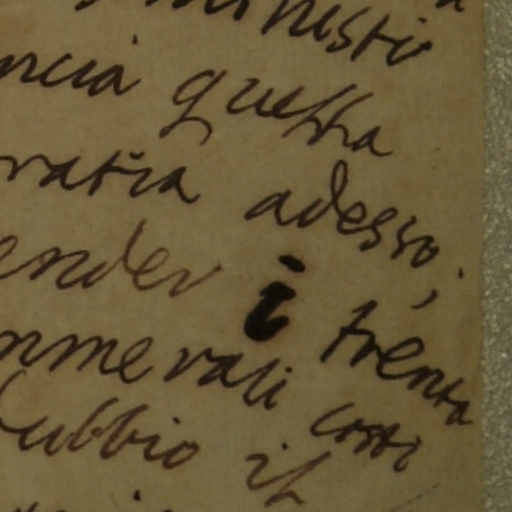 ncia questa
ratia adesso;
ender i trenta
nmerali costi
ubbio il